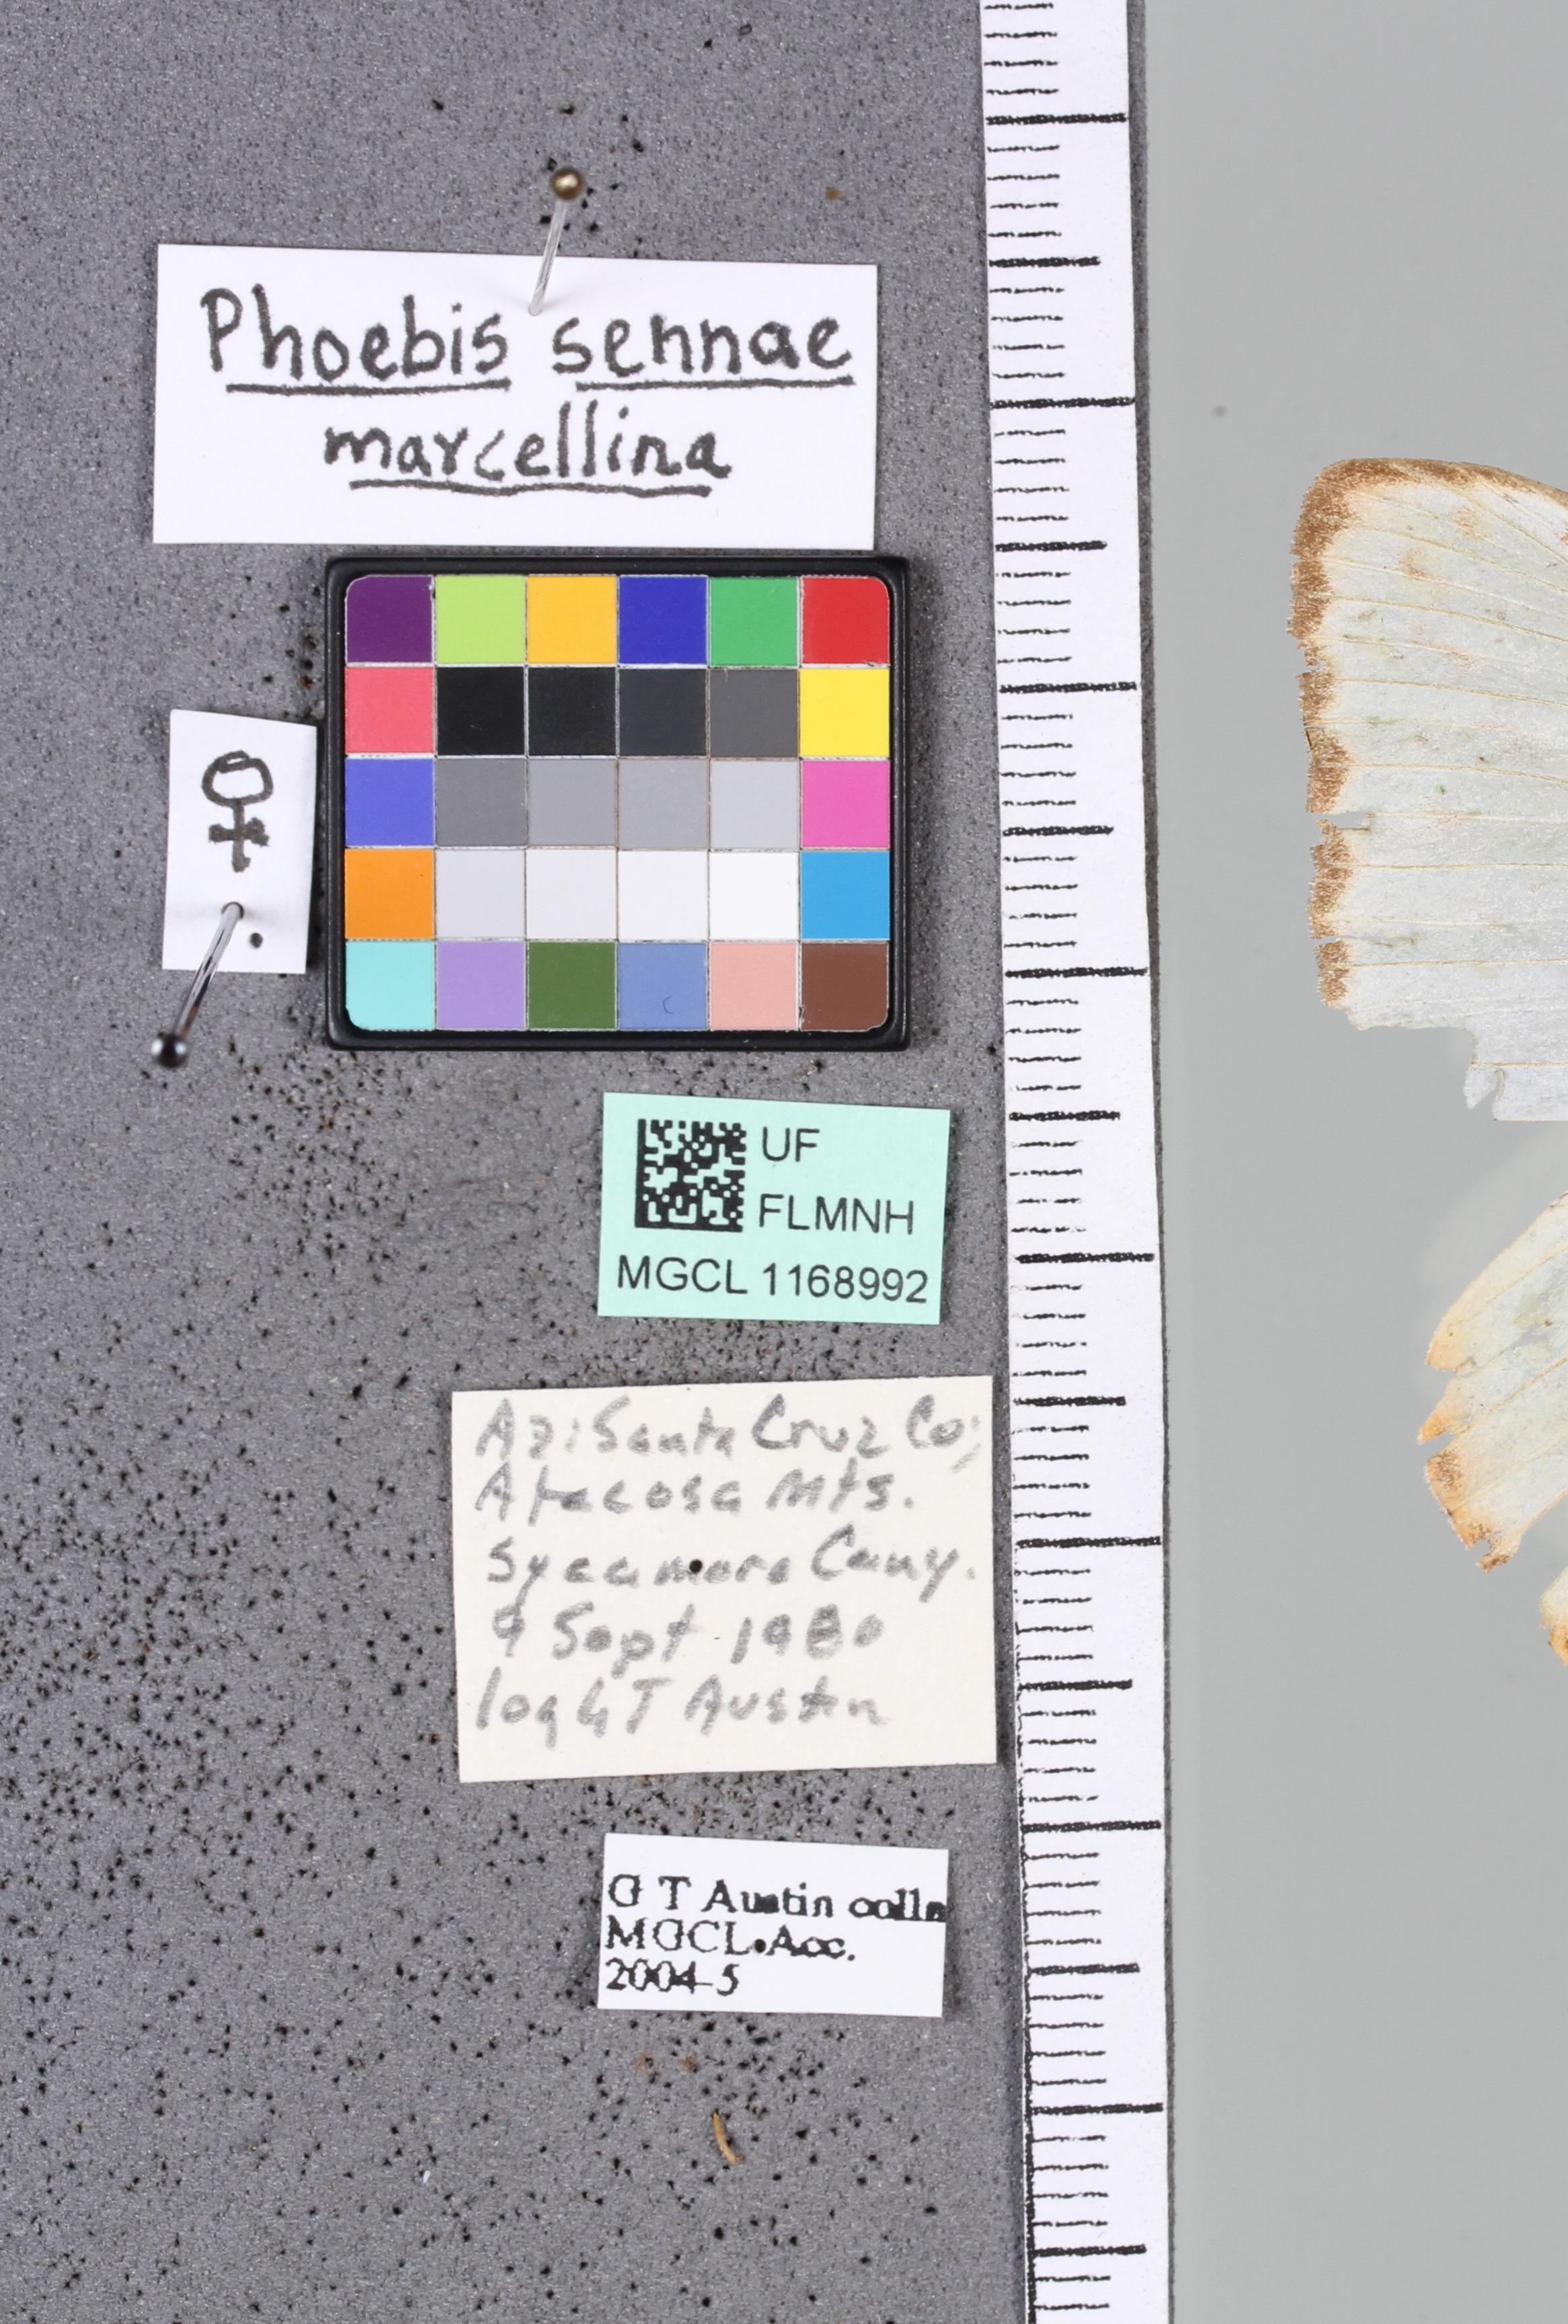 Phoebis sennae
marcellina
♀
UF
FLMNH
MGCL 1168992
Az: Santa Cruz Co;
Atacosa Mts.
Sycamore Cany.
9 Sept 1980
leg GT Austin
G T Austin colln
MGCL Acc.
2004-5